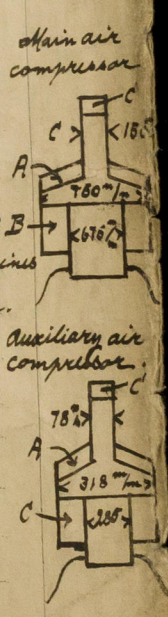 Main air
compressor
C
C
A
760 m/m
B
676 m/m
Auxiliary air
compressor.
C
78 m/m
A
318 m/m
C
285